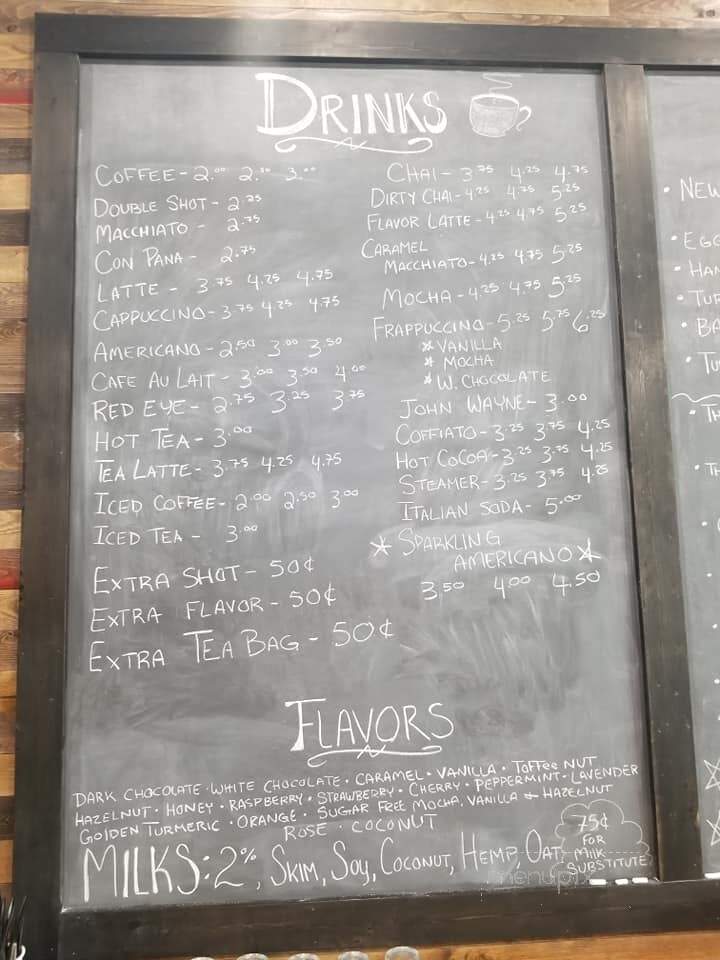 DRINKS
COFFEE - 2.00 2.50 3.00
DOUBLE SHOT - 2.25
MACCHIATO - 2.75
CON PANA - 2.75
LATTE - 3.75 4.25 4.75
CAPPUCCINO - 3.75 4.25 4.75
AMERICANO - 2.50 3.00 3.50
CAFE AU LAIT - 3.00 3.50 4.00
RED EYE - 2.75 3.25 3.75
HOT TEA - 3.00
TEA LATTE - 3.75 4.25 4.75
ICED COFFEE - 2.00 2.50 3.00
ICED TEA - 3.00
EXTRA SHOT - 50¢
EXTRA FLAVOR - 50¢
EXTRA TEA BAG - 50¢
CHAI - 3.75 4.25 4.75
DIRTY CHAI - 4.25 4.75 5.25
FLAVOR LATTE - 4.25 4.75 5.25
CARAMEL
MACCHIATO - 4.25 4.75 5.25
MOCHA - 4.25 4.75 5.25
FRAPPUCCINO - 5.25 5.75 6.25
* VANILLA
* MOCHA
* W. CHOCOLATE
JOHN WAYNE - 3.00
COFFIATO - 3.25 3.75 4.25
HOT COCOA - 3.25 3.75 4.25
STEAMER - 3.25 3.75 4.25
ITALIAN SODA - 5.00
* SPARKLING
AMERICANO *
3.50 4.00 4.50
FLAVORS
DARK CHOCOLATE · WHITE CHOCOLATE · CARAMEL · VANILLA · TOFFEE NUT
HAZELNUT · HONEY · RASPBERRY · STRAWBERRY · CHERRY · PEPPERMINT · LAVENDER
GOLDEN TURMERIC · ORANGE · SUGAR FREE MOCHA, VANILLA & HAZELNUT
ROSE · COCONUT
MILKS: 2%, SKIM, SOY, COCONUT, HEMP, OAT
75¢
FOR
MILK
SUBSTITUTE
· NEW
· EGG